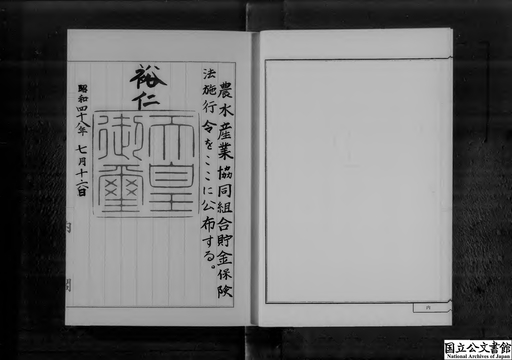 農水産業協同組合貯金保険
法施行令をここに公布する。
裕仁
天皇
御璽
昭和四十八年七月十六日
国立公文書館
National Archives of Japan